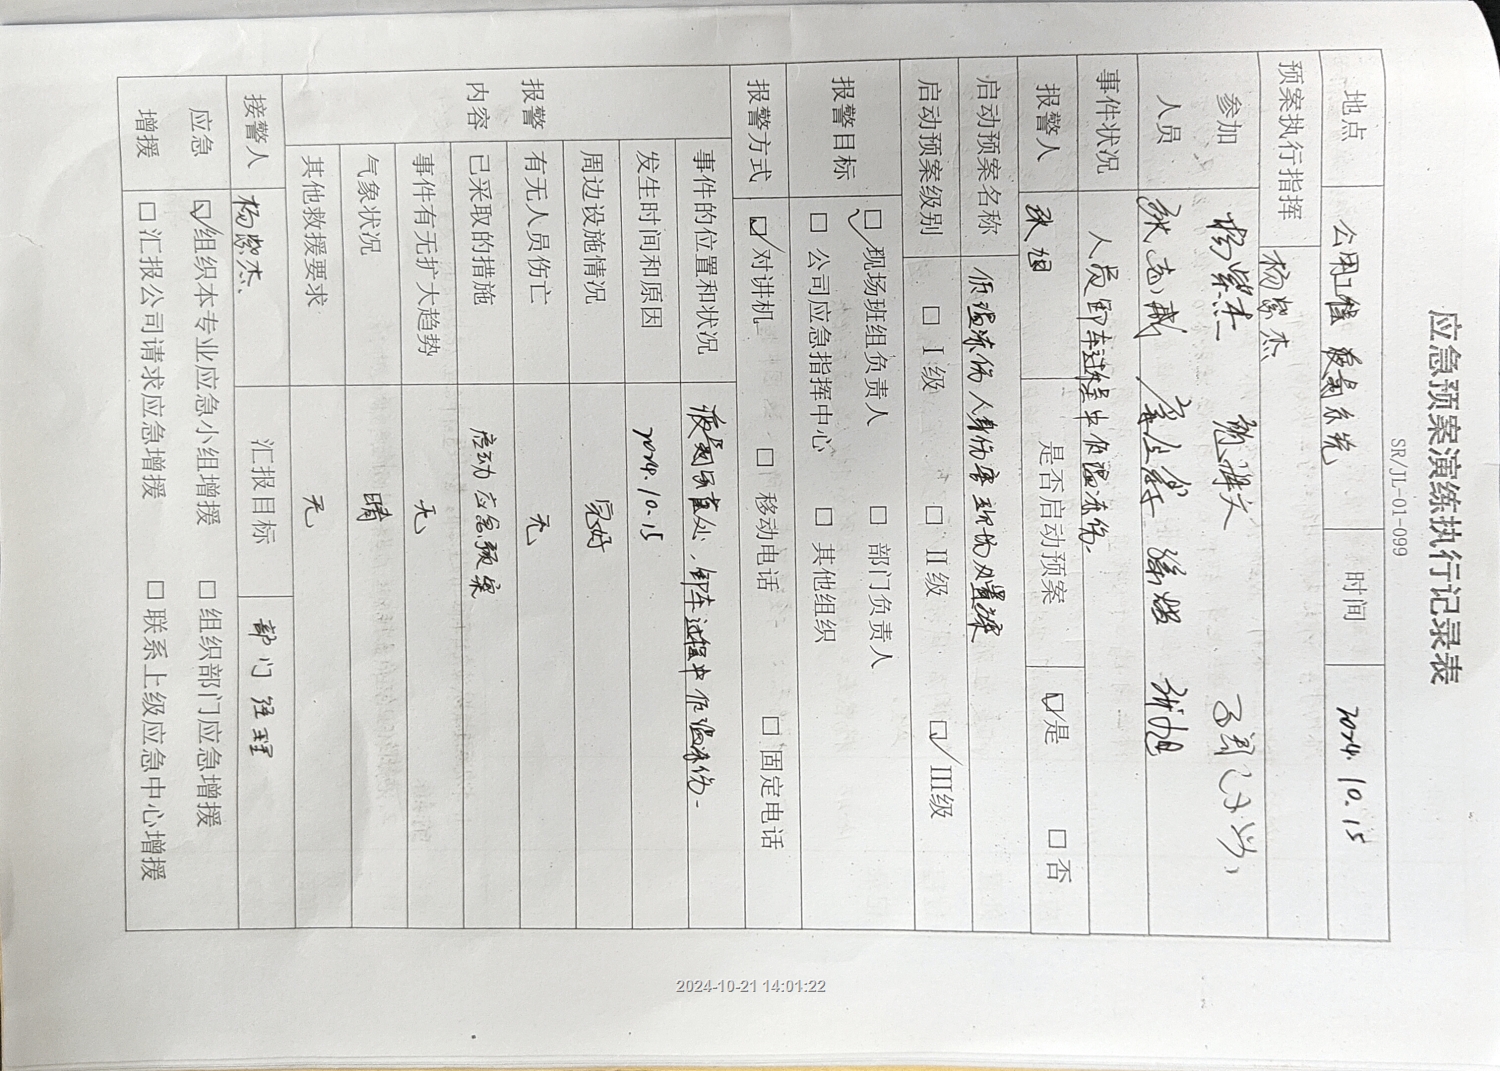 应急预案演练执行记录表
SR/JL-01-099
地点 公用工程 液氮系统 时间 2024.10.15
预案执行指挥 杨紫杰
参加人员 杨紫杰
张志斌 张旭
事件状况 人员卸车过程中低温冻伤.
报警人 张旭 是否启动预案 ☑是 □否
启动预案名称 低温冻伤人身伤害现场处置案
启动预案级别 □ I 级 □ II 级 ☑ III级
报警目标 ☑现场班组负责人 □ 部门负责人
□ 公司应急指挥中心 □ 其他组织
报警方式 ☑对讲机 □ 移动电话 □ 固定电话
报警内容
事件的位置和状况 液氮泵直处，卸车过程中低温冻伤.
发生时间和原因 2024.10.15
周边设施情况 完好
有无人员伤亡 无
已采取的措施 启动应急预案
事件有无扩大趋势 无
气象状况 晴
其他救援要求 无
接警人 杨紫杰 汇报目标 部门经理
应急增援 ☑组织本专业应急小组增援 □ 组织部门应急增援
□ 汇报公司请求应急增援 □ 联系上级应急中心增援
2024-10-21 14:01:22